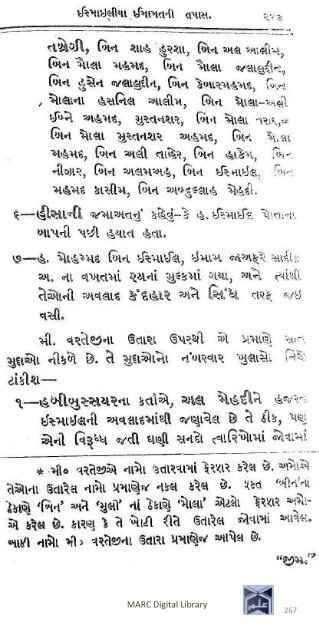 ઈસ્માઈલીયા ઈમામતની તપાસ. ૨૪૭
તજોગી, બિન શાહ હુરશા, બિન અલ આલીમ,
બિન મૈાલા મહમદ, બિન મૈાલા જલાલુદીન,
બિન હુસેન જલાલુદ્દીન, બિન કેબારમહમદ, બિન
મૈાલાના હસનિલ આલીમ, બિન મૈાલા-અલી
ઈબ્ને અહમદ, સુરતનશર, બિન મૈાલા
બિન મૈાલા સુરતનશર અહમદ, બિન મૈાલા
મહમદ, બિન અલી તાહેર, બિન હાકેમ, બિન
નીઝાર, બિન અલમઅહ, બિન ઈસ્માઈલ, બિન
મહમદ કાસીમ, બિન અબ્દુલ્લાહ મેહદી.
૬–હીસાની જમાઅતનું કહેવું–કે હ. ઈસ્માઈલ પોતાના
બાપની પછી હયાત હતા.
૭–હ. મોહમ્મદ બિન ઈસ્માઈલ, ઈમામ જાઅફર સાદીક
અ. ના વખતમાં રયના મુલ્કમાં ગયા, અને ત્યાંથી
તેઓની અવલાદ કંદહાર અને સિંધ તરફ જઈ
વસી.
મી. વરતેજીના ઉતારા ઉપરથી એ પ્રમાણે સાત
મુદ્દાઓ નીકળે છે. તે મુદ્દાઓનો નંબરવાર ખુલાસો નિચે
ટાંકીશ—
૧–હબીબુસ્સયરના કર્તાએ, અલ મેહદીને હજરત
ઈસ્માઈલની અવલાદમાંથી જણાવેલ છે તે ઠીક, પણ
એની વિરૂધ્ધ જતી ઘણી સનદો ત્વારિખોમાં જોવામાં
* મી૦ વરતેજીએ નામો ઉતારવામાં ફેરફાર કરેલ છે. અમોએ
તેઓના ઉતારેલ નામો પ્રમાણેજ નકલ કરેલ છે. ફક્ત 'બીન'ના
ઠેકાણે 'બિન' અને 'મુલી' નાં ઠેકાણે 'મૈાલા' એટલો ફેરફાર અમો-
એ કરેલ છે. કારણ કે તે ખોટી રીતે ઉતારેલ જોવામાં આવેલ.
બાકી નામો મી૦ વરતેજીના ઉતારા પ્રમાણેજ આપેલ છે.
"જીમ."
MARC Digital Library
267